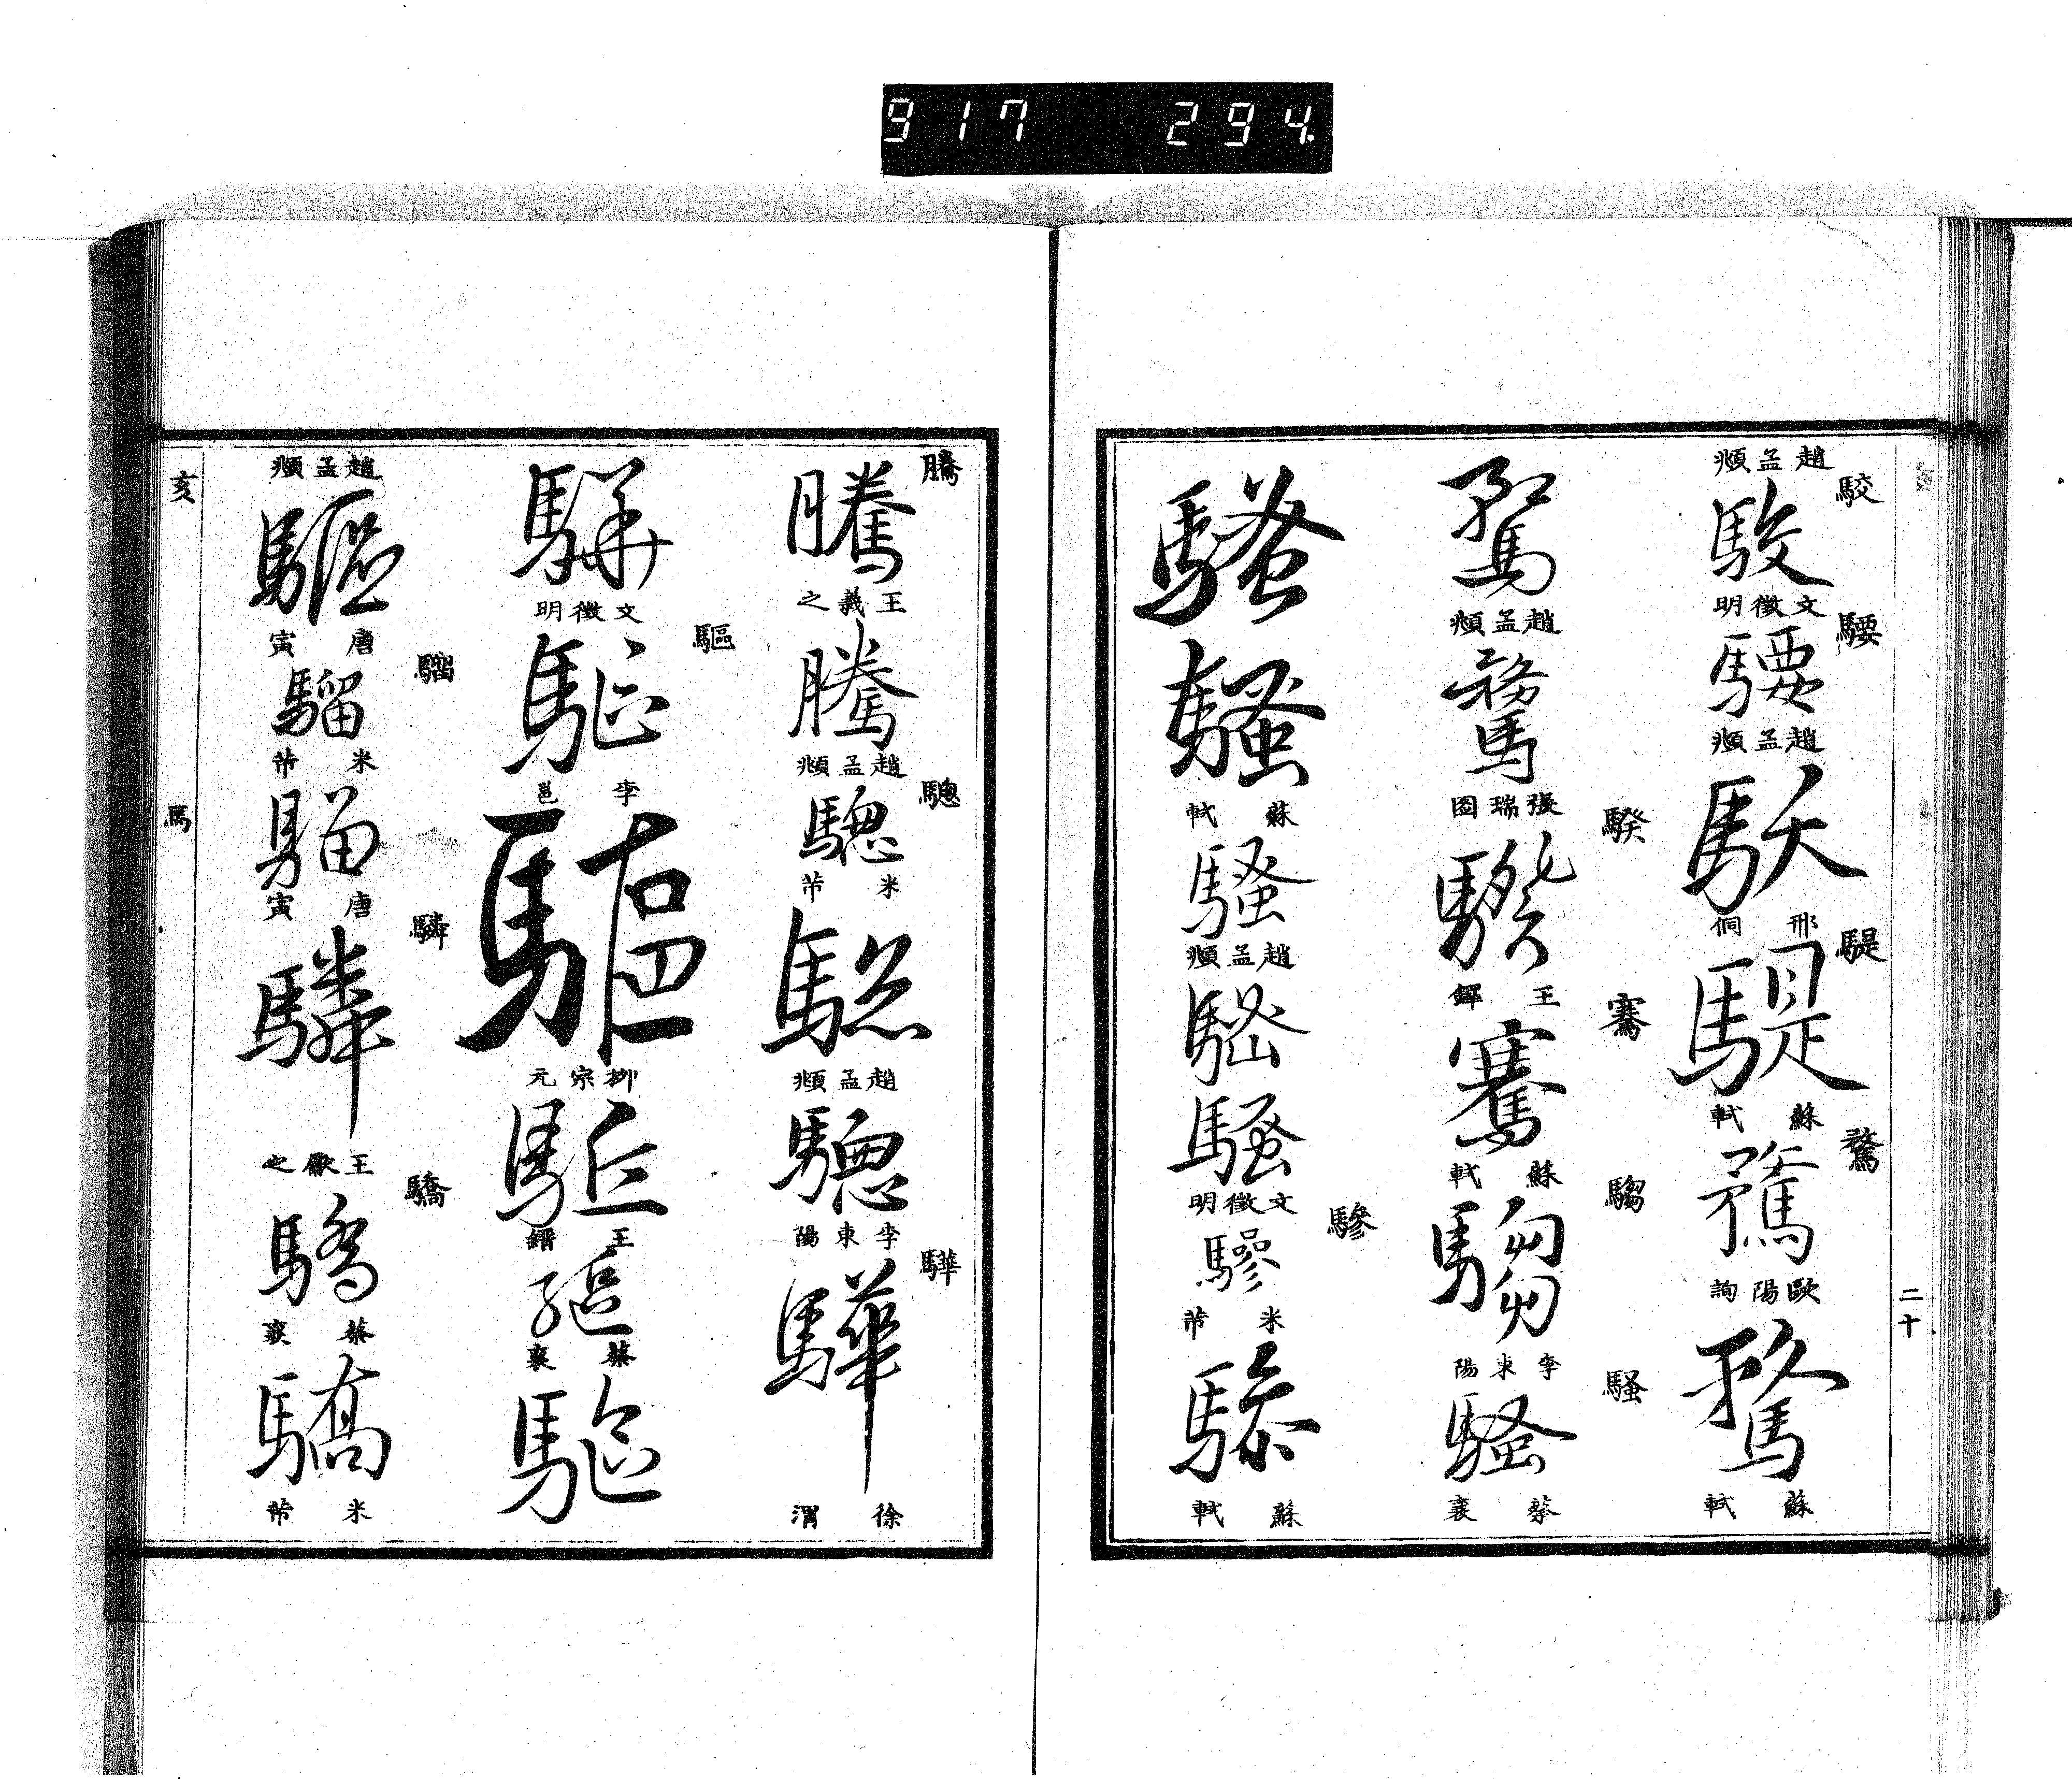 917 294
二十
趙孟頫
駮
駮
文徵明
騕
騕
趙孟頫
馱
邢侗
騠
騠
蘇軾
騖
騖
歐陽詢
騖
蘇軾
騖
趙孟頫
騖
張瑞圖
騤
騤
王鐸
騫
騫
蘇軾
騶
騶
李東陽
騷
騷
蔡襄
騷
騷
蘇軾
騷
趙孟頫
騷
騷
文徵明
驂
驂
米芾
驂
蘇軾
騰
騰
王羲之
騰
趙孟頫
驄
驄
米芾
驄
趙孟頫
驄
李東陽
驊
驊
徐渭
驊
文徵明
驅
驅
李邕
驅
柳宗元
驅
王縉
驅
蔡襄
驅
趙孟頫
驅
唐寅
騮
騮
米芾
騮
唐寅
驎
驎
王獻之
驕
驕
蔡襄
驕
米芾
亥
馬